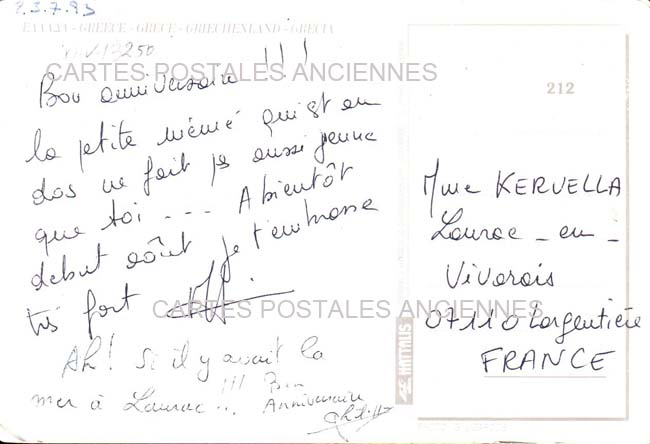 23.7.93
ΕΛΛΑΣ - GREECE - GRECE - GRIECHENLAND - GRECIA
250
CARTES POSTALES ANCIENNES
Bon anniversaire !!!
la petite mémé qui est au
dos ne fait pas aussi jeune
que toi --- A bientôt
début août je t'embrasse
très fort
CARTES POSTALES ANCIENNES
Ah! si il y avait la
mer à Laurac...
!!! Bon
Anniversaire
212
Mme KERVELLA
Laurac - en -
Vivarais
07110 Largentière
FRANCE